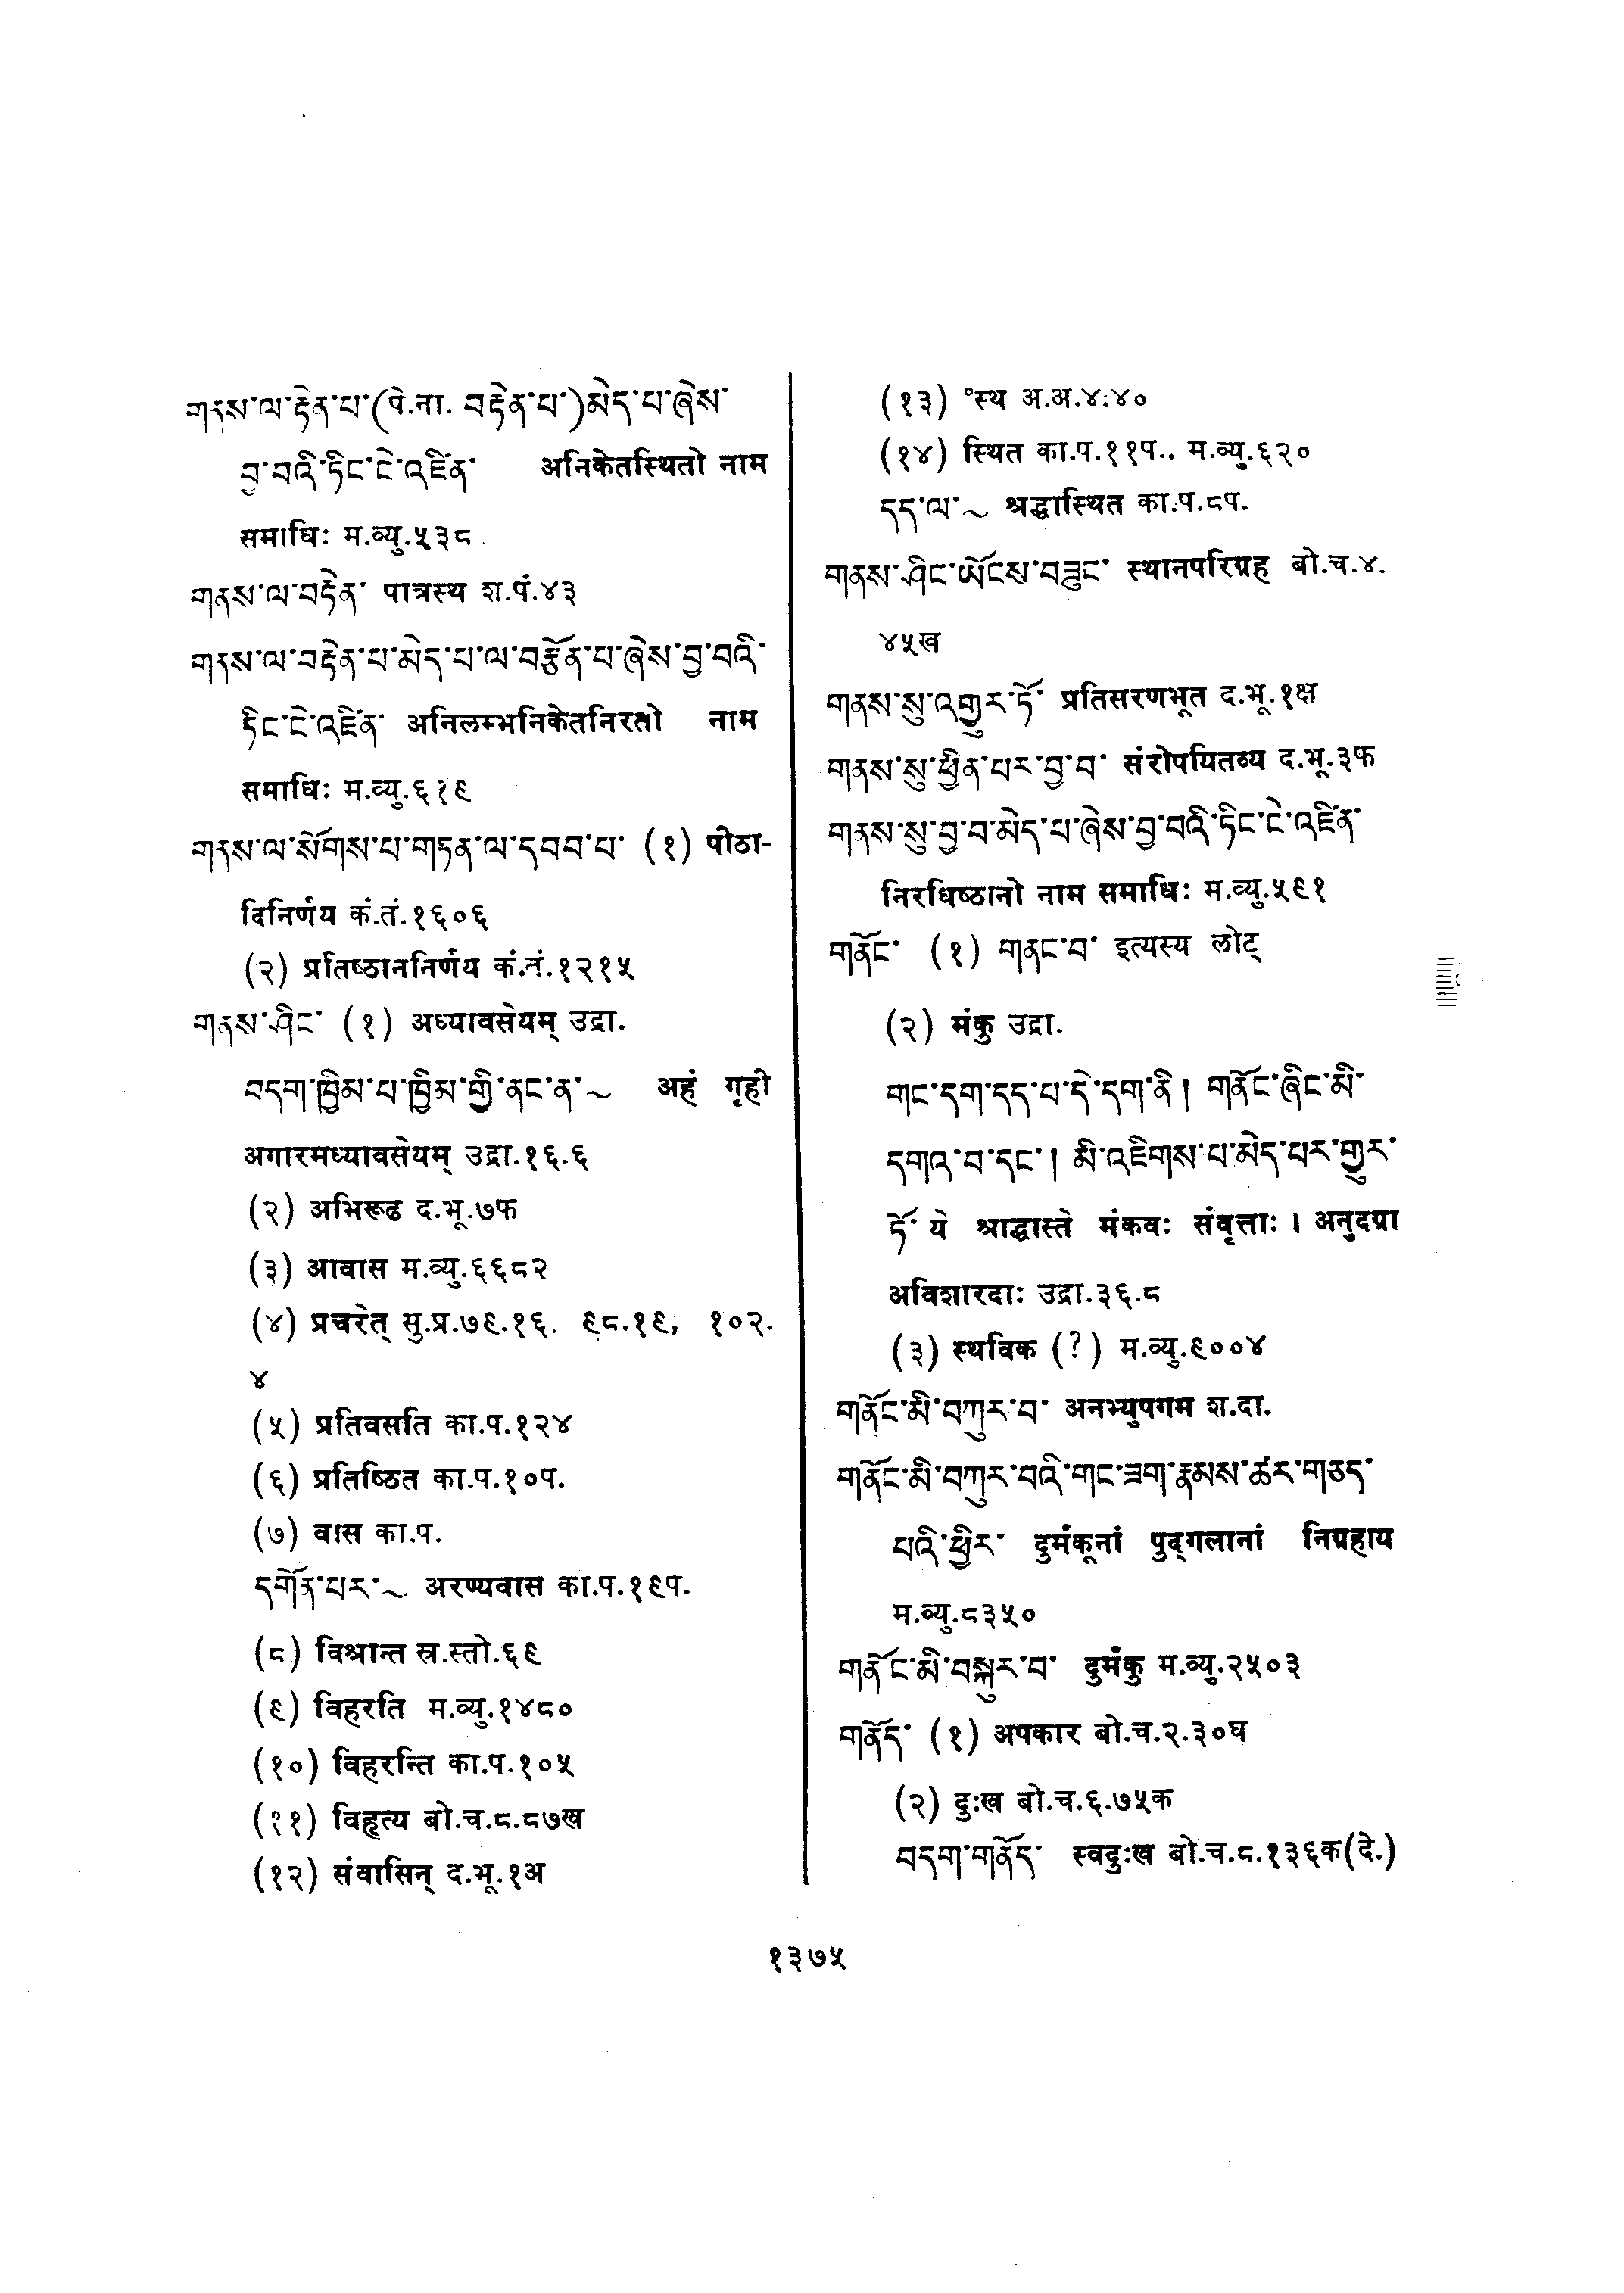 གནས་ལ་རྟེན་པ་(पे.ना. བརྟེན་པ་)མེད་པ་ཞེས་
བྱ་བའི་ཏིང་ངེ་འཛིན་ अनिकेतस्थितो नाम
समाधिः म.व्यु.५३८
གནས་ལ་བརྟེན་ पात्रस्थ श.पं.४३
གནས་ལ་བརྟེན་པ་མེད་པ་ལ་བརྩོན་པ་ཞེས་བྱ་བའི་
ཏིང་ངེ་འཛིན་ अनिलम्भनिकेतनिरतो नाम
समाधिः म.व्यु.६१९
གནས་ལ་སོགས་པ་གཏན་ལ་དབབ་པ་ (१) पीठा-
दिनिर्णय कं.तं.१६०६
(२) प्रतिष्ठाननिर्णय कं.तं.१२१५
གནས་ཤིང་ (१) अध्यावसेयम् उद्रा.
བདག་ཁྱིམ་པ་ཁྱིམ་གྱི་ནང་ན་~ अहं गृही
अगारमध्यावसेयम् उद्रा.१६.६
(२) अभिरूढ द.भू.७फ
(३) आवास म.व्यु.६६८२
(४) प्रचरेत् सु.प्र.७९.१६. ९८.१९, १०२.
४
(५) प्रतिवसति का.प.१२४
(६) प्रतिष्ठित का.प.१०प.
(७) वास का.प.
དགོན་པར་~ अरण्यवास का.प.१९प.
(८) विश्रान्त स्र.स्तो.६९
(९) विहरति म.व्यु.१४८०
(१०) विहरन्ति का.प.१०५
(११) विहृत्य बो.च.८.८७ख
(१२) संवासिन् द.भू.१अ
(१३) °स्थ अ.अ.४.४०
(१४) स्थित का.प.११प.. म.व्यु.६२०
དད་ལ་~ श्रद्धास्थित का.प.८प.
གནས་ཤིང་ཡོངས་བཟུང་ स्थानपरिग्रह बो.च.४.
४५ख
གནས་སུ་འགྱུར་ཏོ་ प्रतिसरणभूत द.भू.१क्ष
གནས་སུ་ཕྱིན་པར་བྱ་བ་ संरोपयितव्य द.भू.३फ
གནས་སུ་བྱ་བ་མེད་པ་ཞེས་བྱ་བའི་ཏིང་ངེ་འཛིན་
निरधिष्ठानो नाम समाधिः म.व्यु.५९१
གནོང་ (१) གནང་བ་ इत्यस्य लोट्
(२) मंकु उद्रा.
གང་དག་དད་པ་དེ་དག་ནི། གནོང་ཞིང་མི་
དགའ་བ་དང་། མི་འཇིགས་པ་མེད་པར་གྱུར་
ཏོ་ ये श्राद्धास्ते मंकवः संवृत्ताः । अनुदग्रा
अविशारदाः उद्रा.३६.८
(३) स्थविक (?) म.व्यु.९००४
གནོང་མི་བཀུར་བ་ अनभ्युपगम श.दा.
གནོང་མི་བཀུར་བའི་གང་ཟག་རྣམས་ཚར་གཅད་
པའི་ཕྱིར་ दुर्मंकूनां पुद्गलानां निग्रहाय
म.व्यु.८३५०
གནོང་མི་བསྐུར་བ་ दुर्मंकु म.व्यु.२५०३
གནོད་ (१) अपकार बो.च.२.३०घ
(२) दुःख बो.च.६.७५क
བདག་གནོད་ स्वदुःख बो.च.८.१३६क(दे.)
१३७५